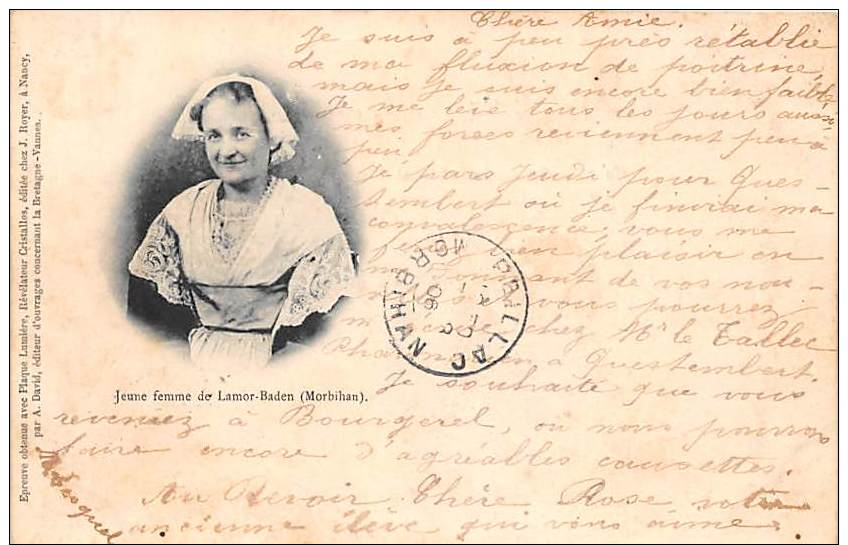 Chère Amie.
Je suis à peu près rétablie
de ma fluxion de poitrine,
mais je suis encore bien faible
Je me lève tous les jours aussi
mes forces reviennent peu à
peu
Je pars Jeudi pour Ques-
tembert où je finirai ma
convalescence, vous me
plaisir en
de vos nou-
vous pourrez
chez Mr le Tallec
Pharmacien a Questembert.
Je souhaite que vous
reveniez à Bourgerel, où nous pourrons
faire encore d'agréables causettes.
Au Revoir Chère Rose votre
ancienne élève qui vous aime.
Jeune femme de Lamor-Baden (Morbihan).
Epreuve obtenue avec Plaque Lumière, Révélateur Cristallos, éditée chez J. Royer, à Nancy,
par A. David, éditeur d'ouvrages concernant la Bretagne-Vannes.
MORBIHAN
06